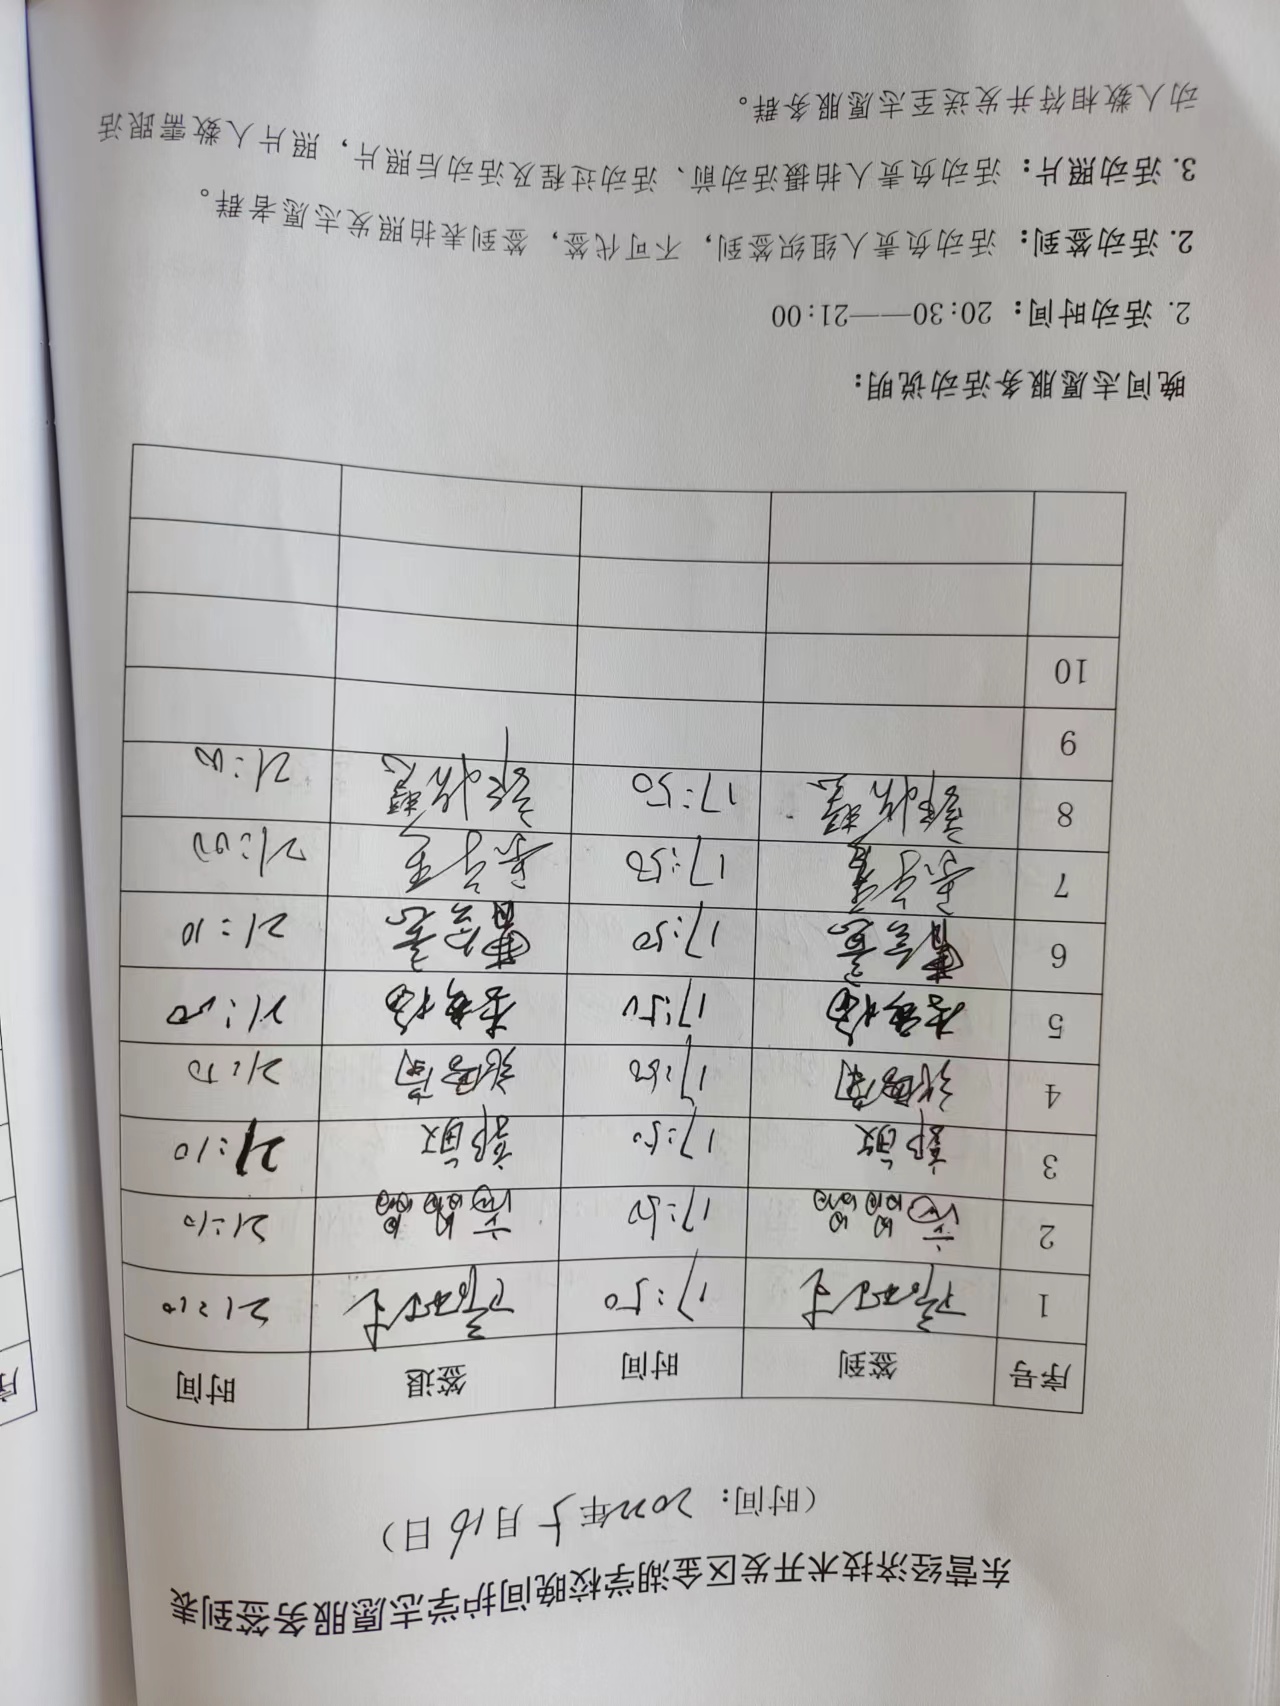 东营经济技术开发区金湖学校晚间护学志愿服务签到表
（时间：2022年5月16日）
序号 签到 时间 签退 时间
1 17:50 21:10
2 17:50 21:10
3 郭敏 17:50 郭敏 21:10
4 17:50 21:10
5 17:50 21:00
6 17:50 21:10
7 17:50 21:00
8 17:50 21:00
9
10
晚间志愿服务活动说明：
2. 活动时间：20:30——21:00
2. 活动签到：活动负责人组织签到，不可代签，签到表拍照发志愿者群。
3. 活动照片：活动负责人拍摄活动前、活动过程及活动后照片，照片人数需跟活
动人数相符并发送至志愿服务群。